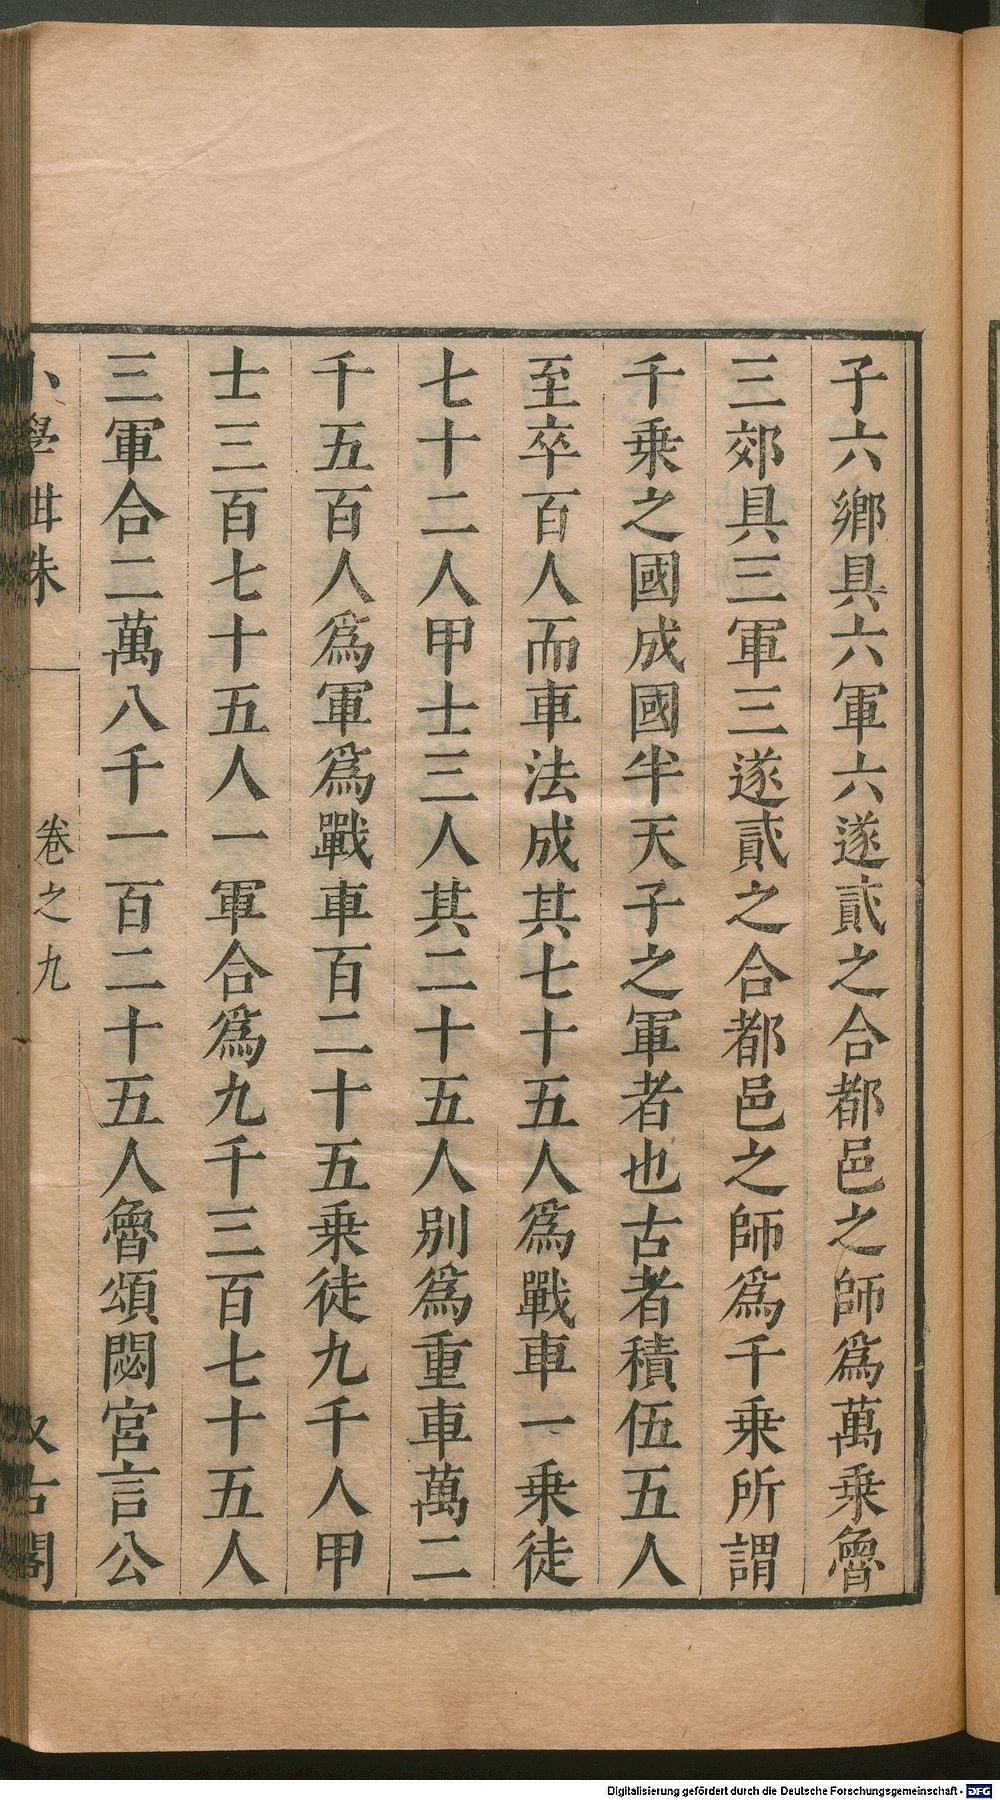 子六鄉具六軍六遂貳之合都邑之師爲萬乗魯
三郊具三軍三遂貳之合都邑之師爲千乗所謂
千乗之國成國半天子之軍者也古者積伍五人
至卒百人而車法成其七十五人爲戰車一乗徒
七十二人甲士三人其二十五人别爲重車萬二
千五百人爲軍爲戰車百二十五乗徒九千人甲
士三百七十五人一軍合爲九千三百七十五人
三軍合二萬八千一百二十五人魯頌閟宮言公
小學紺珠
卷之九
汲古閣
Digitalisierung gefördert durch die Deutsche Forschungsgemeinschaft - DFG